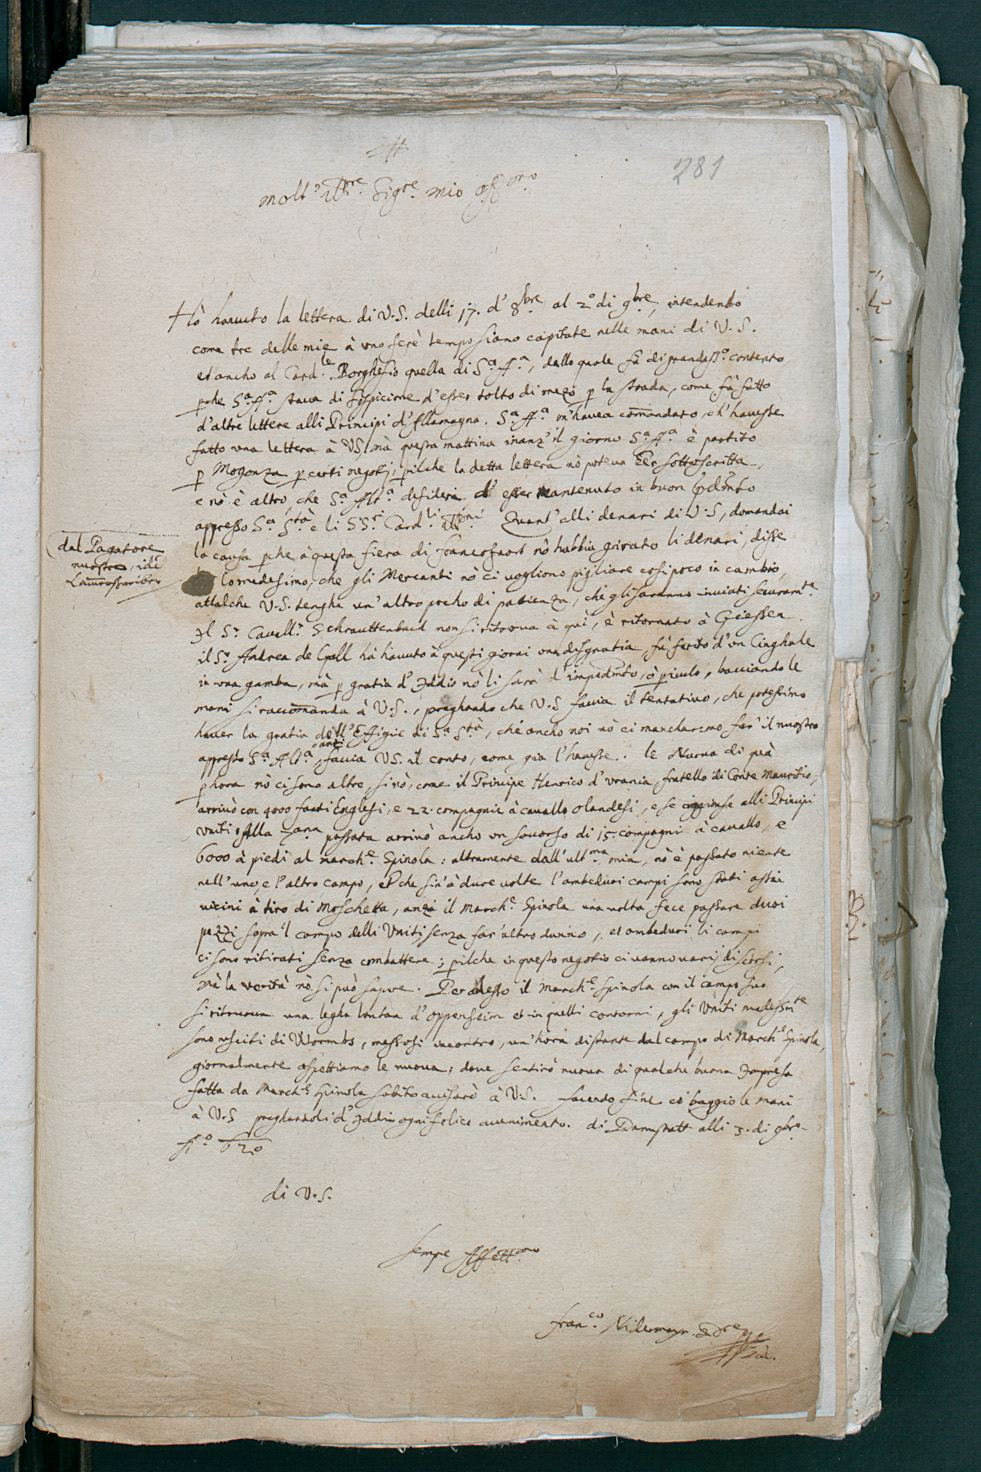 281
Molt.o Ill.re Sig.re mio oss.mo
Hò havuto la lettera di V.S. delli 17. d' 8bre al 2.o di 9bre, intendendo
come tre delle mie à uno tempo siano capitate nelle mani di V.S.
et ancho al Card.le Borghesio quella di S.a A.a, dallo quale fà di grandiss.o contento
perche S.a A.a stava di sospicione d'esser tolto di mezo p la strada, come fù fatto
d'altre lettere alli Principi d'Allamagna. S.a A.a m'havea comandato, ch'havesse
fatto una lettera à VS, mà questa mattina inanz' il giorno S.a A.a è partito
p Mogonza p certi negotij, pilche la detta lettera nò poteva Esser sottoscritta,
e nò è altro che S.a Alt.a desidera d' esser mantenuto in buon
appresso S.a S.tà e li S.ri Card.li Ill.mi Quant' alli denari di V.S, domandai
dal Pagatore
nuostro, ile
la causa pche à questa fiera di Francofort nò habbia girato li denari, disse
lo medesimo, che gli Mercanti nò ci vogliono pigliare cosi poco in cambio,
attalche V.S. tenghi un' altro pocho di patienza, che gli saranno inviati securam.te
Il S.r Cavall.r Schrauttenbach non si ritrova à qui, è ritornato à Giessen.
il S.r Andrea de Gall hà havuto à questi giorni una disgratia, fù ferito d'un Cinghale
in una gamba, mà p gratia d' Iddio nò li sarà d'impedim.to, ò piculo, basciando le
mani si raccomanda à V.S., preghando che V.S. faccia il tentativo, che potessimo
haver la gratia dell' Effigie di S.a S.tà, che ancho noi nò ci mancharemo far' il nuostro
appresso S.a Alt.a, anzi faccia VS. il conto, come già l'havesse. le Nuova di quà
phora nò ci sono altre, sinò, come il Principe Henrico d'Urania, fratello di Conte Mauritio,
arrivò con 4000 fanti Englesi, e 22. compagnie à cavallo olandesi, e se aggiunse alli Principi
Uniti, Alla passata arrivò ancho un soccorso di 15. compagni à cavallo, e
6000 à piedi al March.e Spinola: altramente dall' ult.ma mia, nò è passato niente
nell' uno, e l'altro campo, et che sin' à due volte l'ambeduoi campi sono stati assai
vicini à tiro di Moschetta, anzi il March.e Spinola una volta fece passare duoi
pezzi sopra 'l campo delli Uniti, senza far' altro danno, et ambeduoi li campi
ci sono ritirati senza combattere; pilche in questo negotio ci vanno varij discorsi,
mà la verità nò si può sapere. Per adesso il March.e Spinola con il campo suo
si ritruova una legha lontan d'oppenheim et in quelli contorni, gli Uniti
sono usciti di Wormbs, messosi incontro, un' hora distante dal campo di March.e Spinola,
giornalmente aspettiamo le nuova, dove sentirò nuova di qualche buona Impresa
fatta da March.e Spinola subito avisarò à V.S. facendo fine et baggio le mani
à V.S preghandoli d'Iddio ogni felice avenimento. di Darmstatt alli 3. di 9bre.
A.o 620
di V.S.
sempre Affett.mo
Fran.co Nidermayr